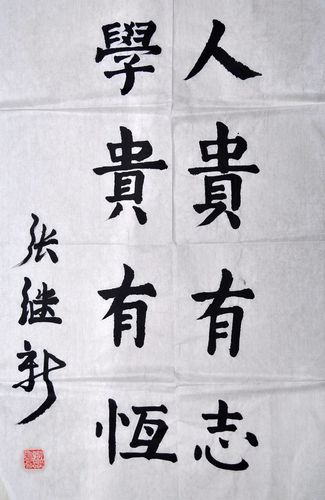 人貴有志
學貴有恆
张继新